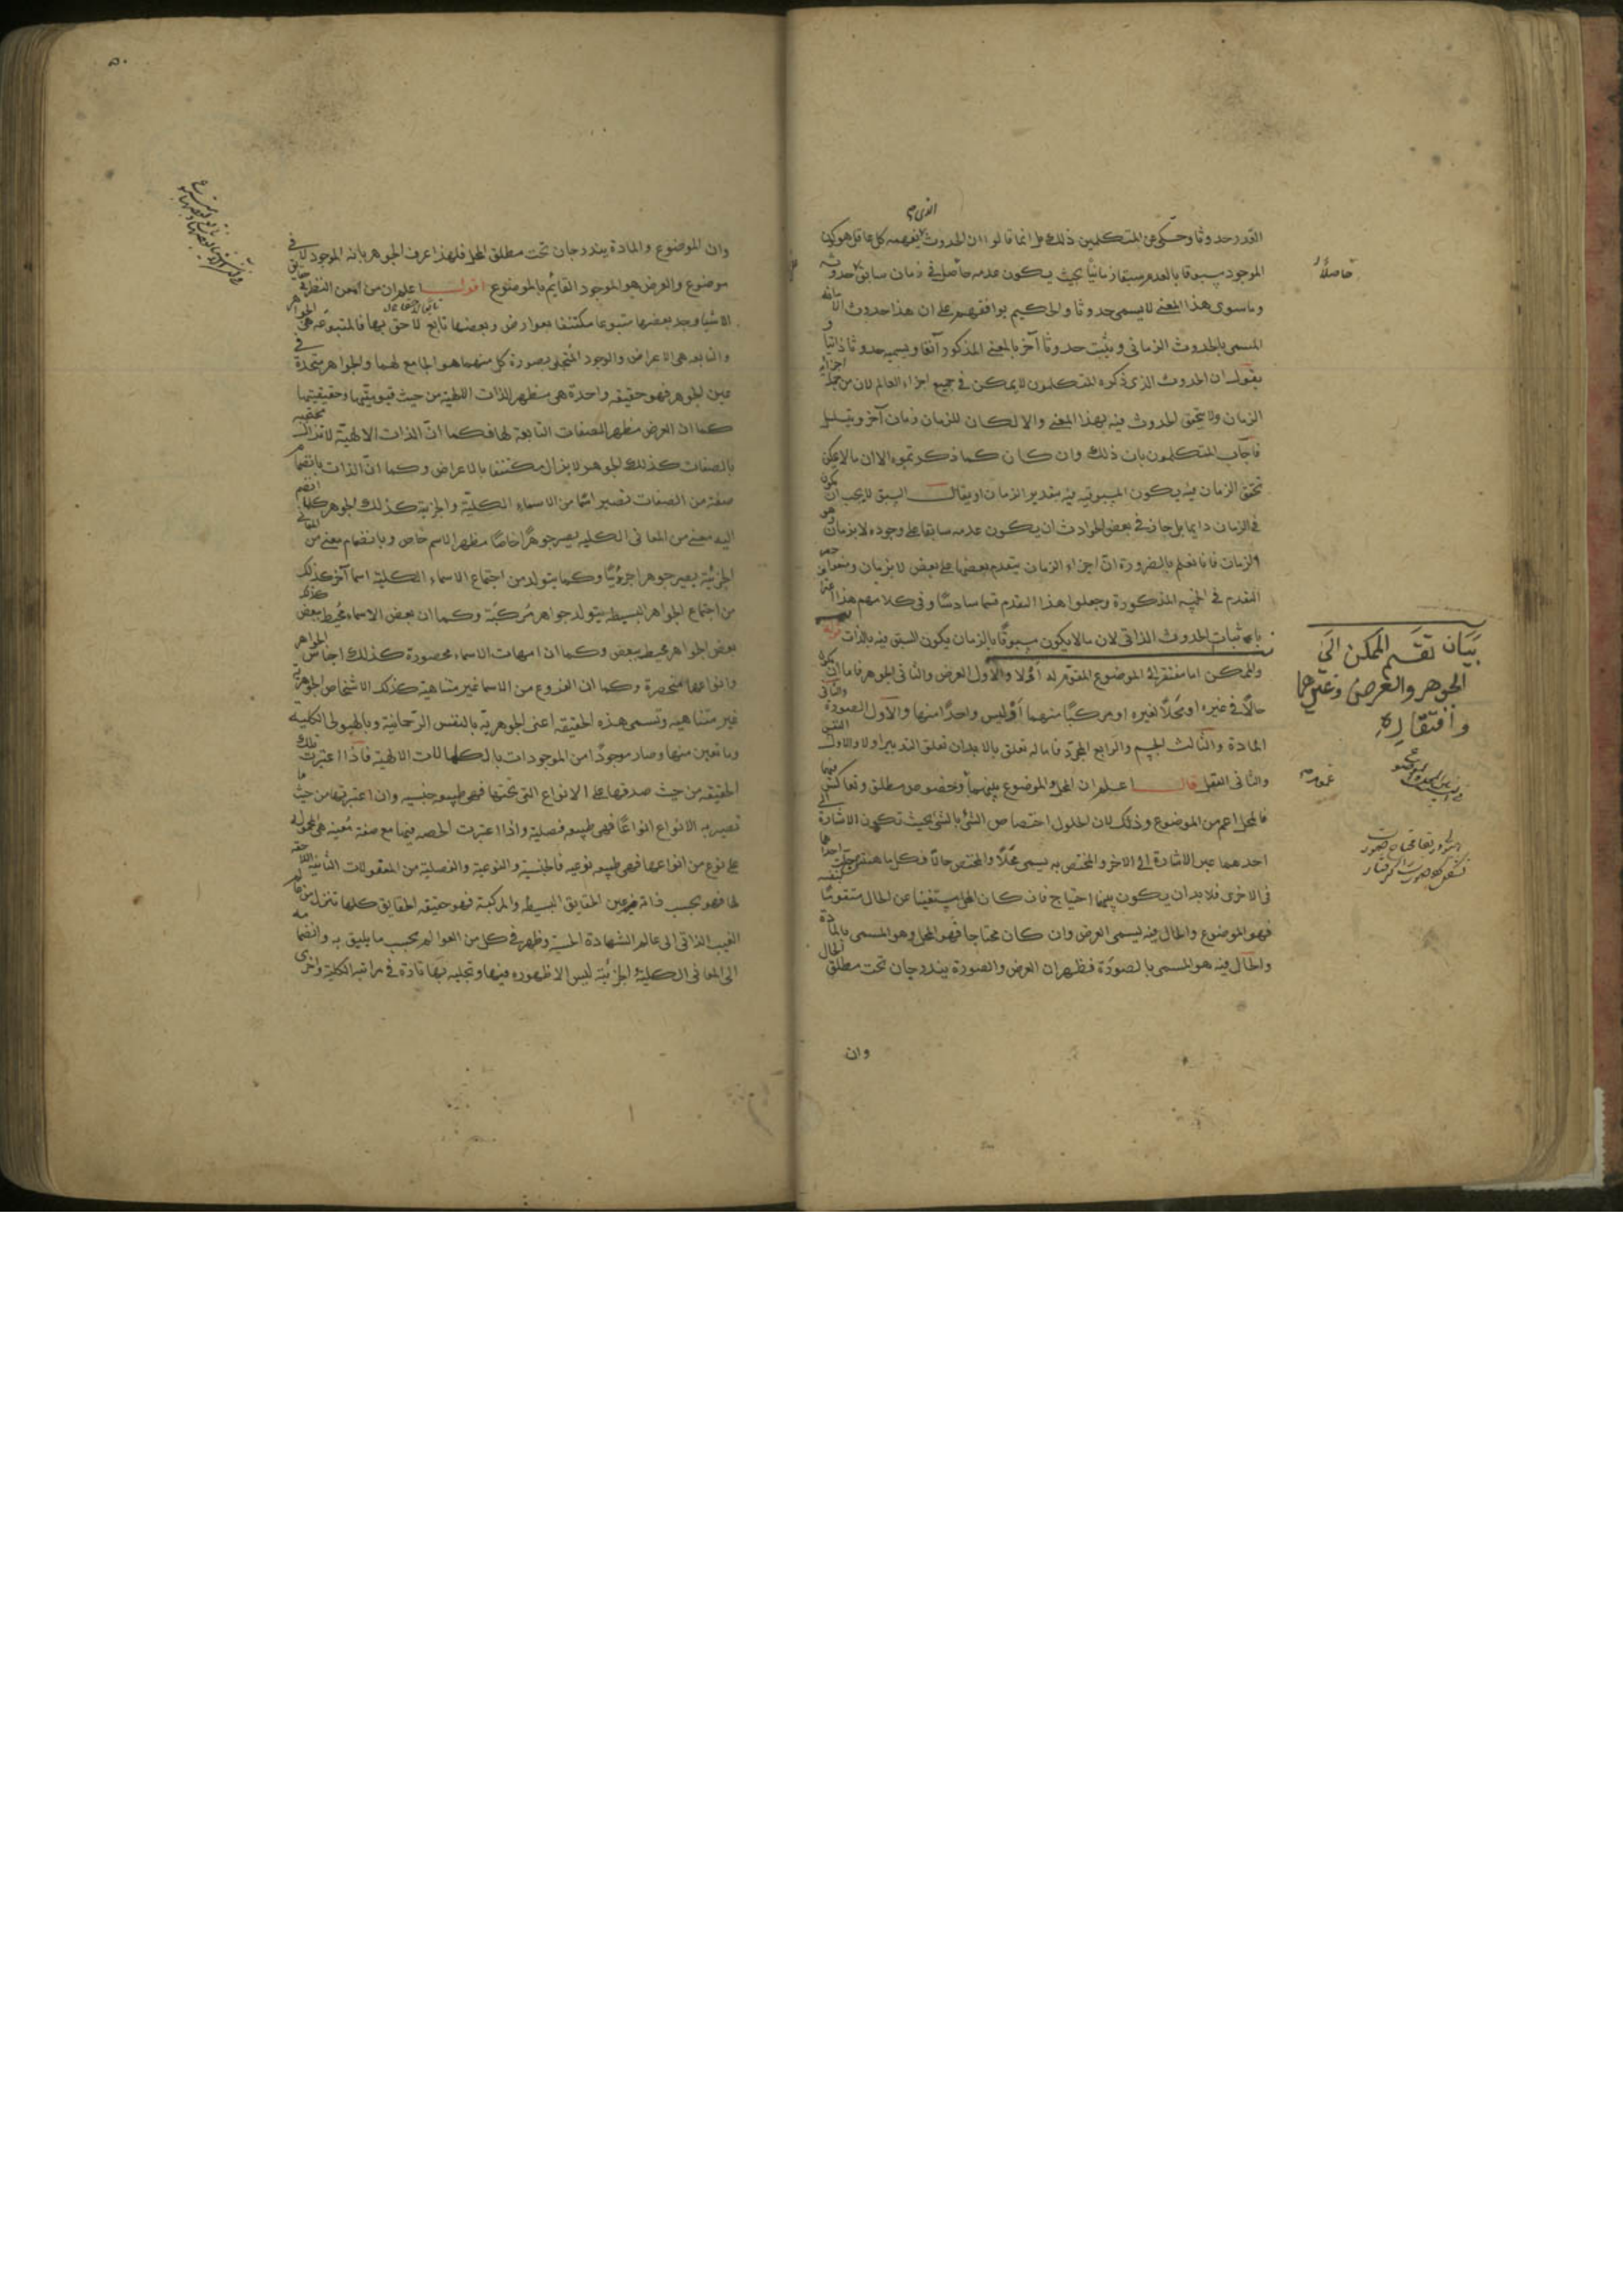 القدر حدوثا وحكى عن المتكلمين ذلك بل انما قالوا ان الحدوث الذى يفهمه كل عاقل هو كون
الموجود مسبوقا بالعدم سبقا زمانيا بحيث يكون عدمه حاصلا فى زمان سابق حدوثه
وما سوى هذا المعنى لا يسمى حدوثا والحكيم يوافقهم على ان هذا حدوث الا انه
المسمى بالحدوث الزمانى ويثبت حدوثا آخر بالمعنى المذكور آنفا ويسميه حدوثا ذاتيا و
يقول ان الحدوث الذى ذكره المتكلمون لا يمكن فى جميع اجزاء العالم لان من جملة اجزاء
الزمان ولا يتحقق الحدوث فيه بهذا المعنى والا لكان للزمان زمان آخر ويتسلسل
فاجاب المتكلمون بان ذلك وان كان كما ذكرتموه الا ان ما لا يمكن
تحقق الزمان فيه يكون المسبوقيه فيه بتقدير الزمان او يقال السبق لا يجب ان يكون
فى الزمان دايما بل جاز فى بعض الحوادث ان يكون عدمه سابقا على وجوده لا بزمان هو
الزمان فانا نعلم بالضرورة ان اجزاء الزمان يتقدم بعضها على بعض لا بزمان ومنعوا
التقدم فى الخمسة المذكورة وجعلوا هذا التقدم قسما سادسا وفى كلامهم هذا
باثبات الحدوث الذاتى لان ما لا يكون مسبوقا بالزمان يكون السبق فيه بالذات
والممكن اما مفتقر الى الموضوع المقوم له اولا والاول العرض والثانى الجوهر فاما ان يكون
حالا فى غيره او محلا لغيره او مركبا منهما او ليس واحدا منها والاول الصورة والثانى
المادة والثالث الجسم والرابع المجرد فاما له تعلق بالابدان تعلق التدبير اولا والاول النفس
والثانى العقل قال اعلم ان المحل والموضوع بينهما عموم وخصوص مطلق وتعاكس
فالمحل اعم من الموضوع وذلك لان الحلول اختصاص الشئ بالشئ بحيث تكون الاشارة الى
احدهما عين الاشارة الى الاخر والمختص به يسمى محلا والمختص حالا
فى الاخرى فلابد ان يكون بينهما احتياج فان كان المحل مستغنيا عن الحال متقوما بنفسه
فهو الموضوع والحال فيه ليسمى العرض وان كان محتاجا فهو المحل وهو المسمى بالمادة
والحال فيه هو المسمى بالصورة فظهر ان العرض والصورة يندرجان تحت مطلق الحال
وان
حاصلاً
بيان تقسيم الممكن الى
الجوهر والعرض وتعريفهما
وافتقاره
عموم
وان الموضوع والمادة يندرجان تحت مطلق المحل فلهذا عرف الجوهر بانه الموجود لا فى
موضوع والعرض هو الموجود القايم بالموضوع اقول اعلم ان من امعن النظر فى حقايق
الاشيا وجد بعضها متبوعا مكتنفا بعوارض وبعضها تابع لاحق بها فالمتبوعه هى الجواهر
والتابعه هى الاعراض والوجود المتجلى بصورة كل منهما هو الجامع لهما والجواهر متحدة فى
عين الجوهر فهو حقيقه واحدة هى مظهر الذات الالهية من حيث قيوميتها وحقيقتها
كما ان العرض مظهر للصفات التابعة لها فكما ان الذات الالهية لا تزال محتجبه
بالصفات كذلك الجوهر لا يزال مكتنفا بالاعراض وكما ان الذات بانضمام
صفة من الصفات تصير اسما من الاسماء الكلية والجزئية كذلك الجوهر كلما انضم
اليه معنى من المعانى الكليه يصير جوهرا خاصا مظهرا لاسم خاص وبانضمام معنى من المعانى
الجزئية يصير جوهرا جزئيا وكما يتولد من اجتماع الاسماء الكلية اسما آخر كذلك
من اجتماع الجواهر البسيطه يتولد جواهر مركبة وكما ان بعض الاسماء محيط ببعض كذلك
بعض الجواهر محيط ببعض وكما ان امهات الاسماء محصورة كذلك اجناس الجواهر
وانواعها منحصرة وكما ان الفروع من الاسما غير متناهية كذلك الاشخاص الجوهرية
غير متناهيه وتسمى هذه الحقيقه اعنى الجوهرية بالنفس الرحمانية وبالهيولى الكليه
وما تعين منها وصار موجودا من الموجودات بالكلمات الالهية فاذا اعتبرت تلك
الحقيقه من حيث صدقها على الانواع التى تحتها فهى طبيعه جنسيه وان اعتبرتها من حيث ما
تصير به الانواع انواعا فهى طبيعه فصلية واذا اعتبرت الحصه فيها مع صفة معينه هى المحموله
على نوع من انواعها فهى طبيعه نوعيه فالجنسية والنوعية والفصلية من المعقولات الثانية اللاحقه
لها فهو بحسب ذاته عين الحقايق البسيطه والمركبة فهو حقيقه الحقايق كلها تنزل من عالم
الغيب الذاتى الى عالم الشهادة الحسية وظهر فى كل من العوالم بحسب ما يليق به وانضمامه
الى المعانى الكلية الجزئية ليس الا ظهوره فيها وتجليه بها تارة فى مراتبه الكلية واخرى